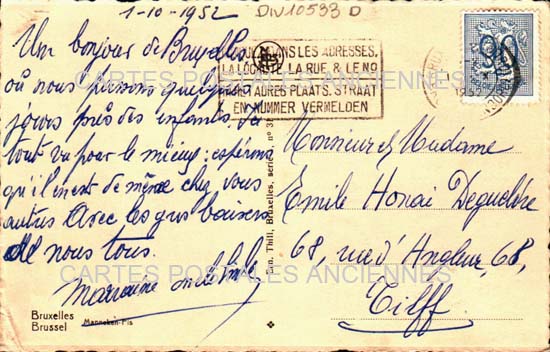 1-10-1952
DIV10593 D
Un bonjour de Bruxelles
où nous passons quelques
jours près des enfants.
tout va pour le mieux : espérons
qu'il en est de même chez vous
autres. Avec les gros baisers
de nous tous.
Bruxelles
Brussel
Manneken-Pis
Thill, Bruxelles, série n°
DANS LES ADRESSES,
LA LOCALITE, LA RUE & LE NO
ADRES PLAATS, STRAAT
EN NUMMER VERMELDEN
90
Monsieur et Madame
Emile Honai
68, rue d'Angleur, 68,
Tilff
CARTES POSTALES ANCIENNES
CARTES POSTALES ANCIENNES